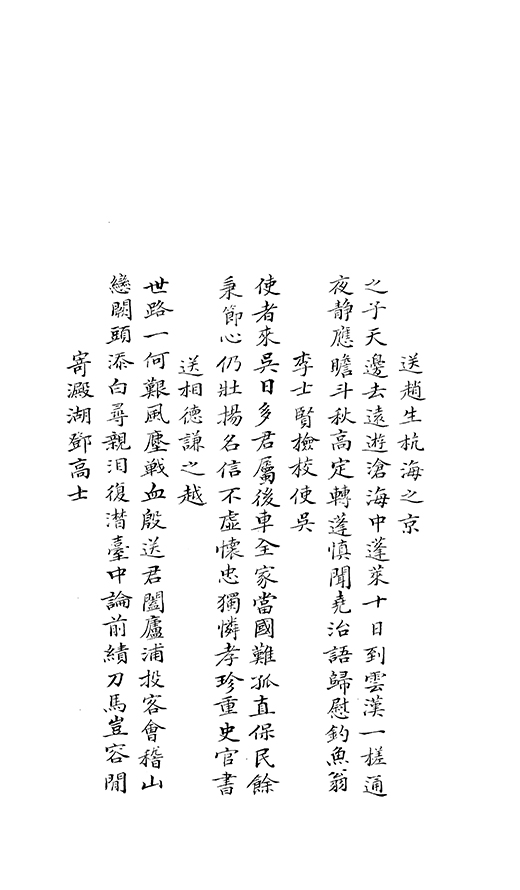 送趙生杭海之京
之子天邊去遠遊滄海中蓬萊十日到雲漢一槎通
夜静應瞻斗秋高定轉蓬慎聞堯治語歸慰釣魚翁
李士賢撿校使吳
使者來吳日多君屬後車全家當國難孤直保民餘
秉節心仍壯揚名信不虛懷忠獨憐孝珍重史官書
送相德謙之越
世路一何艱風塵戦血殷送君闔廬浦投客會稽山
戀闕頭添白尋親淚復潜臺中論前績刀馬豈容閒
寄澱湖鄧高士